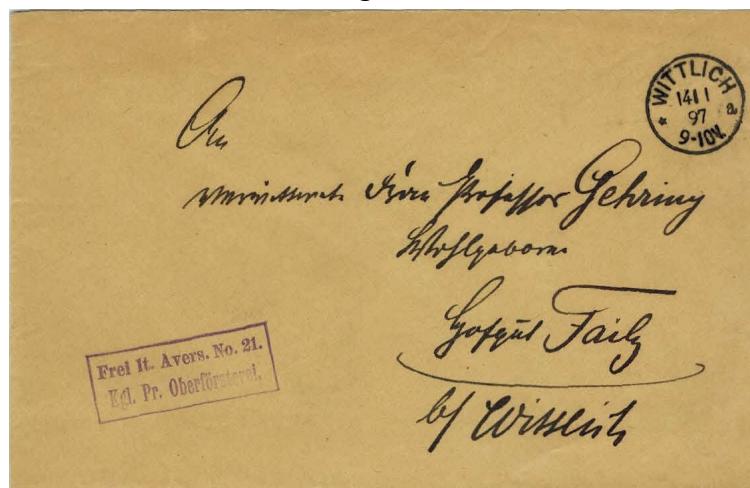 WITTLICH
14 1
97
9-10V.
* a
An
verwittwete Frau Professor Gehring
Wohlgeboren
Hofgut Failz
b/ Wittlich
Frei lt. Avers. No. 21.
Kgl. Pr. Oberförsterei.